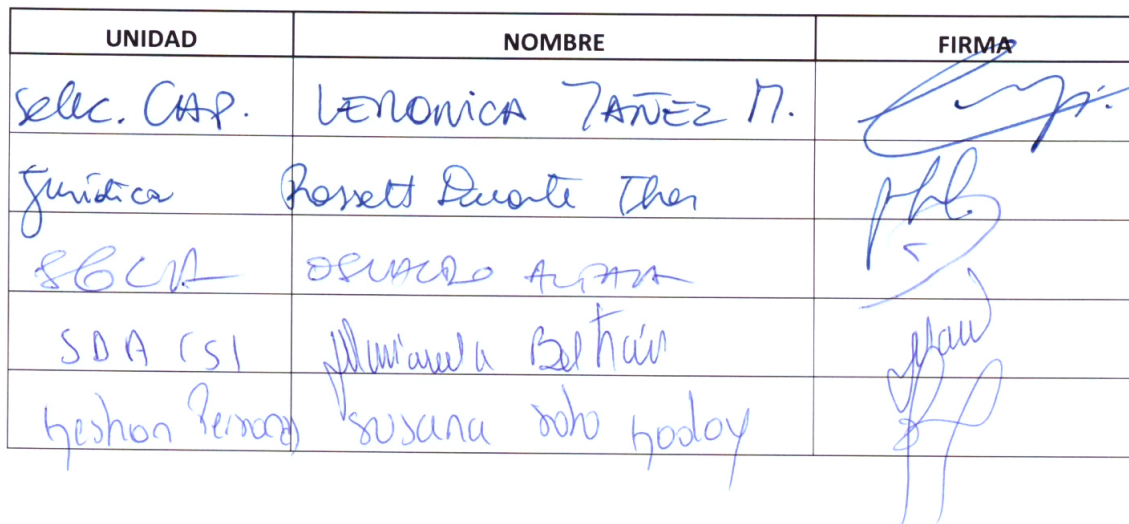 UNIDAD NOMBRE FIRMA
Selec. CAP. VERONICA YAÑEZ M.
Jurídica Rossett Duarte Ther
OSVALDO
SDA CSI Marianela Beltrán
Gestion Personas Susana Soto Godoy